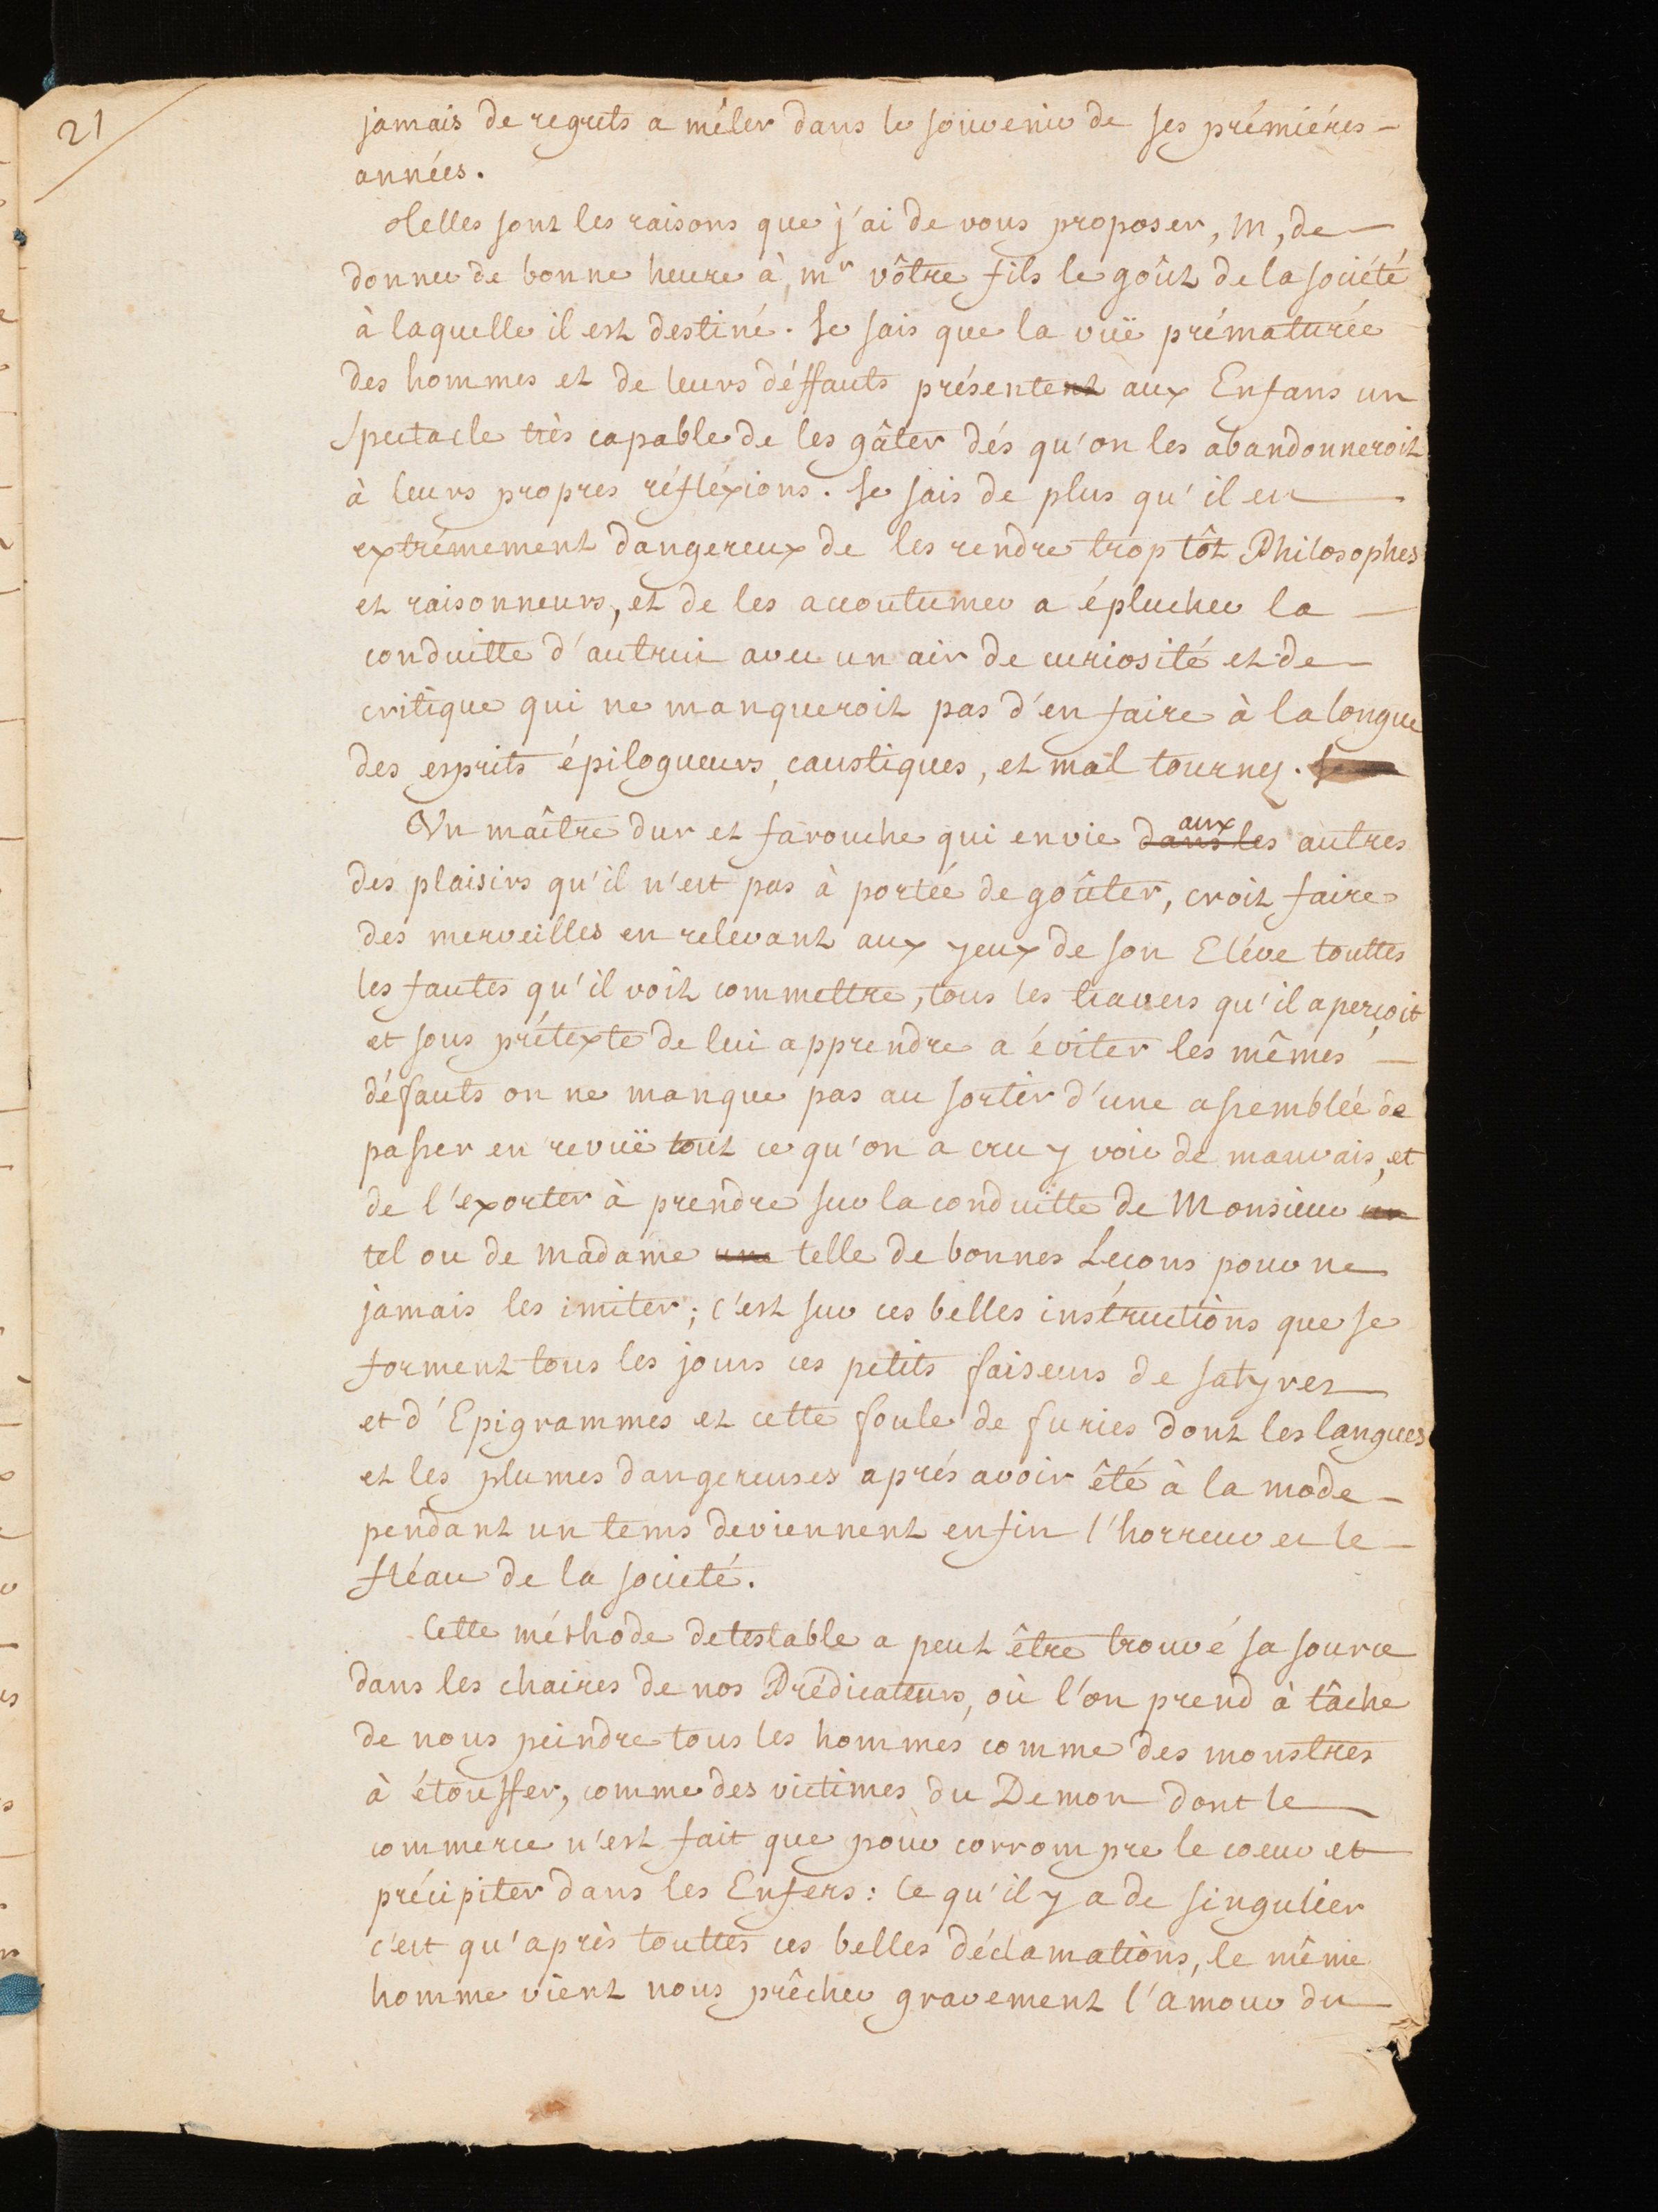 21
jamais de regrets a mêler dans le souvenir de ses prémiéres
années.
Telles sont les raisons que j'ai de vous proposer, M, de
donner de bonne heure à mr vôtre fils le goût de la société
à laquelle il est destiné. Je sais que la vuë prématurée
des hommes et de leurs déffauts présentent aux Enfans un
spectacle très capable de les gâter dés qu'on les abandonneroit
à leurs propres réfléxions. Je sais de plus qu'il est
extrémement dangereux de les rendre trop tôt Philosophes
et raisonneurs, et de les accoutumer a éplucher la
conduitte d'autrui avec un air de curiosité et de
critique qui ne manqueroit pas d'en faire à la longue
des esprits épilogueurs, caustiques, et mal tournez. Je
aux
Un maître dur et farouche qui envie dans les autres
des plaisirs qu'il n'est pas à portée de goûter, croit faire
des merveilles en relevant aux yeux de son Eléve touttes
les fautes qu'il voit commettre, tous les travers qu'il aperçoit
et sous prétexte de lui apprendre a éviter les mêmes
défauts on ne manque pas au sortir d'une assemblée de
passer en revuë tout ce qu'on a cru y voir de mauvais, et
de l'exorter à prendre sur la conduitte de Monsieur un
tel ou de Madame une telle de bonnes Leçons pour ne
jamais les imiter; c'est sur ces belles instructions que se
forment tous les jours ces petits faiseurs de satyres
et d'Epigrammes et cette foule de furies dont les langues
et les plumes dangereuses aprés avoir êté à la mode
pendant un tems deviennent enfin l'horreur et le
fléau de la societé.
Cette méthode detestable a peut être trouvé sa source
dans les chaires de nos Prédicateurs, où l'on prend à tâche
de nous peindre tous les hommes comme des monstres
à étouffer, comme des victimes du Demon dont le
commerce n'est fait que pour corrompre le coeur et
précipiter dans les Enfers: ce qu'il y a de singulier
c'est qu'après touttes ces belles déclamations, le même
homme vient nous prêcher gravement l'amour du